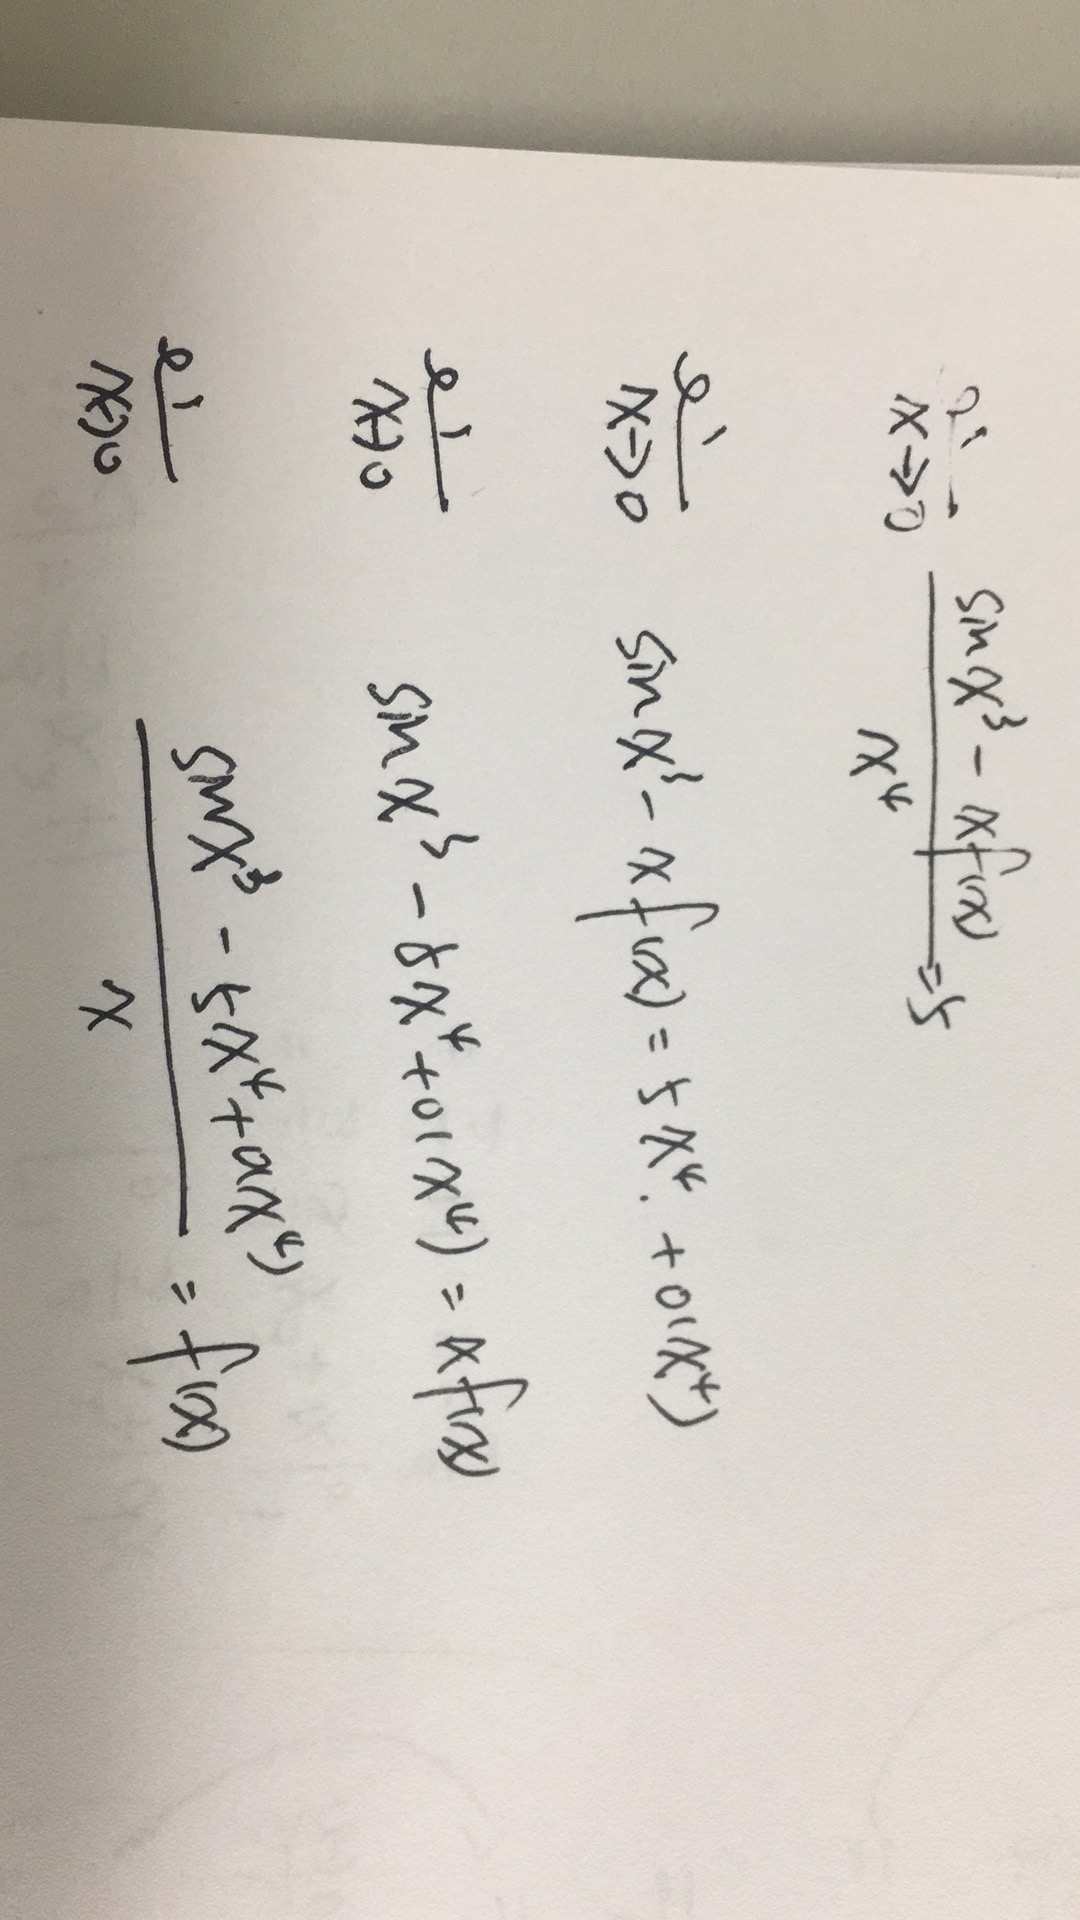 lim x→0 (sin x³ - x f(x)) / x⁴ = 5
lim x→0 sin x³ - x f(x) = 5x⁴ . + o(x⁴)
lim x→0 sin x³ - 8x⁴ + o(x⁴) = x f(x)
lim x→0 (sin x³ - 5x⁴ + o(x⁴)) / x = f(x)